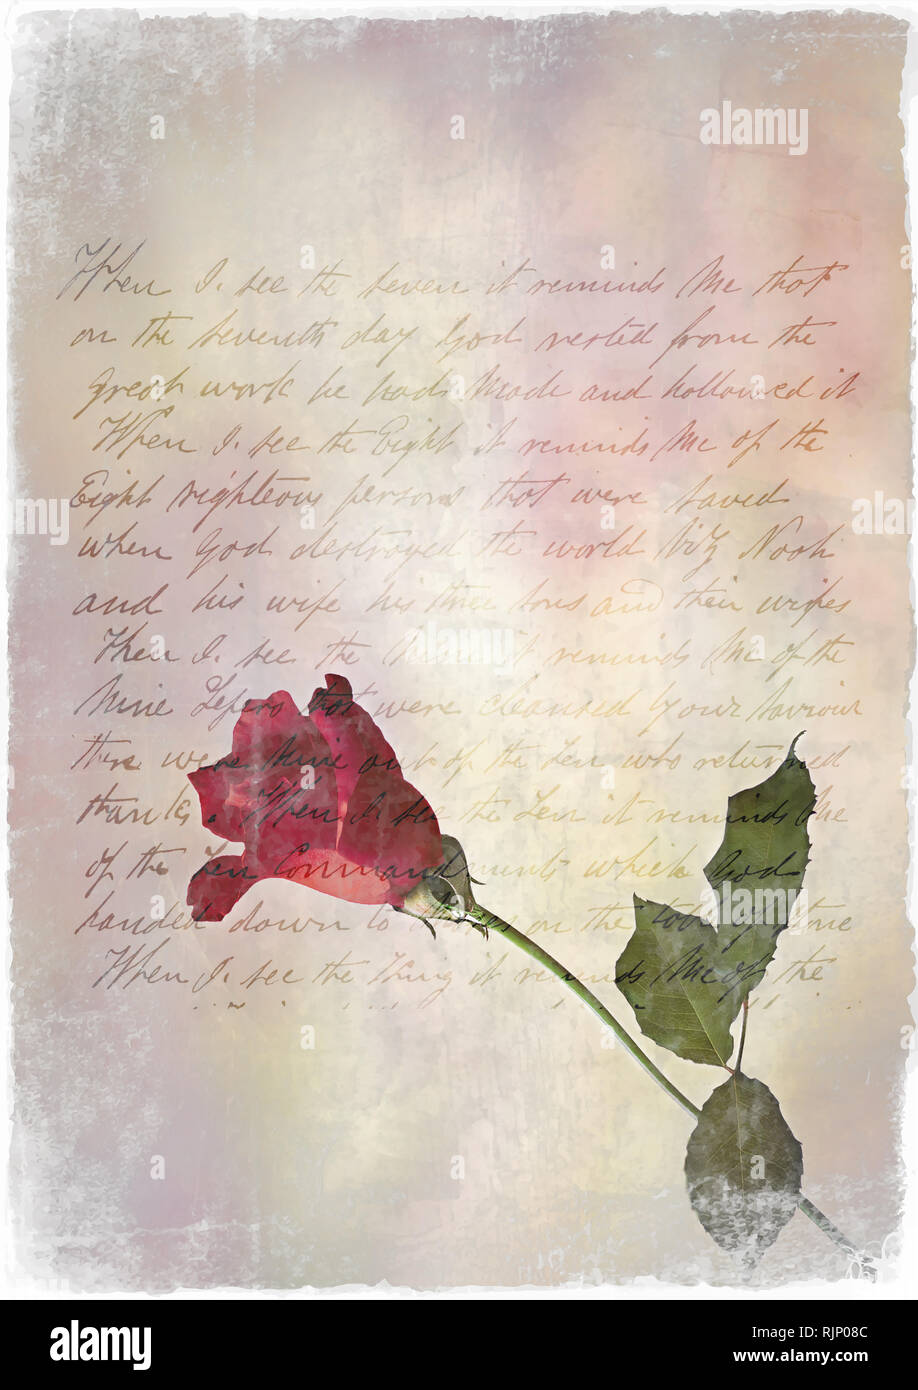 alamy
When I see the seven it reminds Me that
on the seventh day God rested from the
great work he had Made and hollowed it
When I see the Eight it reminds Me of the
Eight righteous persons that were saved
when God destroyed the world Viz Noah
and his wife his three sons and their wifes
When I see the it reminds Me of the
Nine Lepers that were cleansed by our Saviour
there were Nine out of the Ten who returned
thanks. When I see the Ten it reminds Me
of the Ten Commandments which God
handed down to on the of Stone
When I see the King it reminds Me of the
alamy
Image ID: RJP08C
www.alamy.com